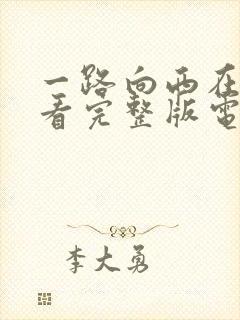 一路向西在
看完整版電
李大勇